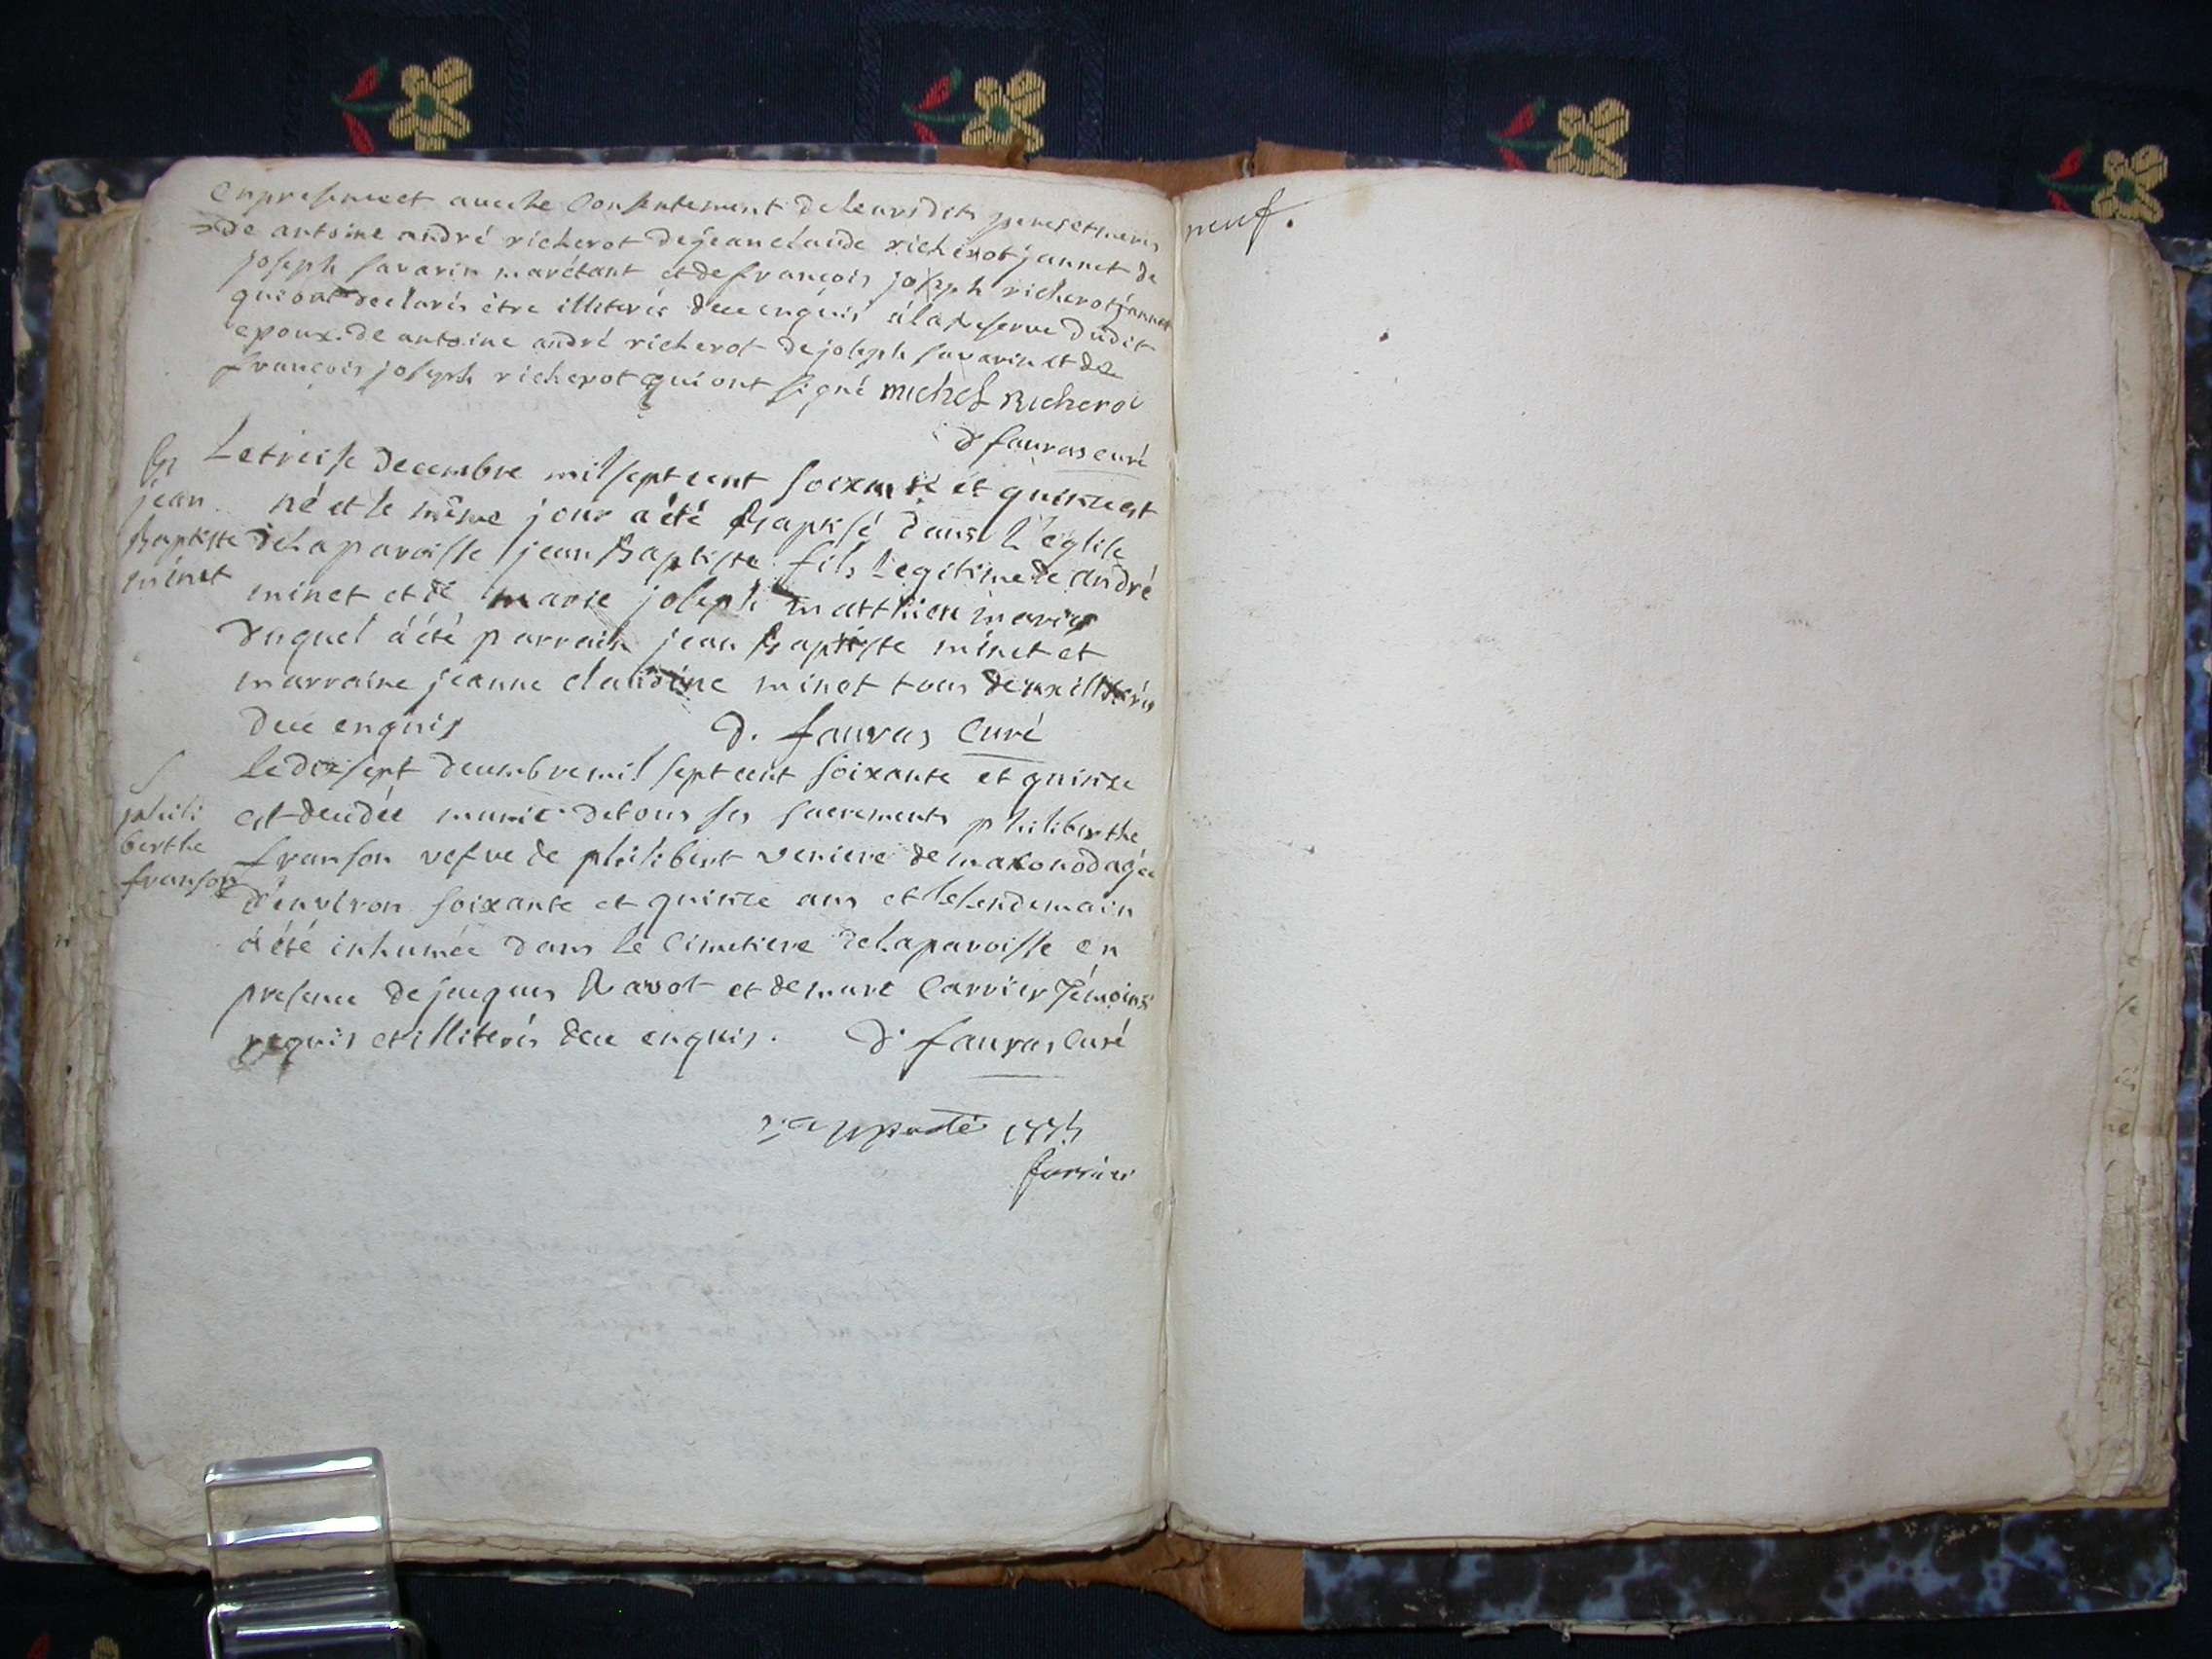 en presence et avec le Consentement de leursdits peres et meres
de antoine andré richerot de jean claude richerot jannet de
joseph savarin et de françois joseph richerot jannet
qui ont declarés être illiterés de ce enquis à la reserve dudit
epoux de antoine andré richerot de joseph savarin et de
françois joseph richerot qui ont signé michel Richerot
d fauras curé
B
jean
Baptiste
minet
Le treise decembre mil sept cent soixante et quinze est
né et le même jour a été Baptisé dans l'église
de la paroisse jean Baptiste fils Legitime de andré
minet et de marie joseph matthieu mariés
duquel a été parrain jean Baptiste minet et
marraine jeanne claudine minet tous deux illiterés
de ce enquis d. fauras Curé
S
phili
berthe
franson
le dix sept decembre mil sept cent soixante et quinze
est decedée munie de tous ses sacrements philiberthe
franson vefve de philibert veniere de agée
d'environ soixante et quinze ans et le lendemain
a été inhumée dans le Cimetiere de la paroisse en
presence de jacques Ravot et de marc Carrier Témoins
requis et illiterés de ce enquis. d. fauras Curé
1775
neuf.